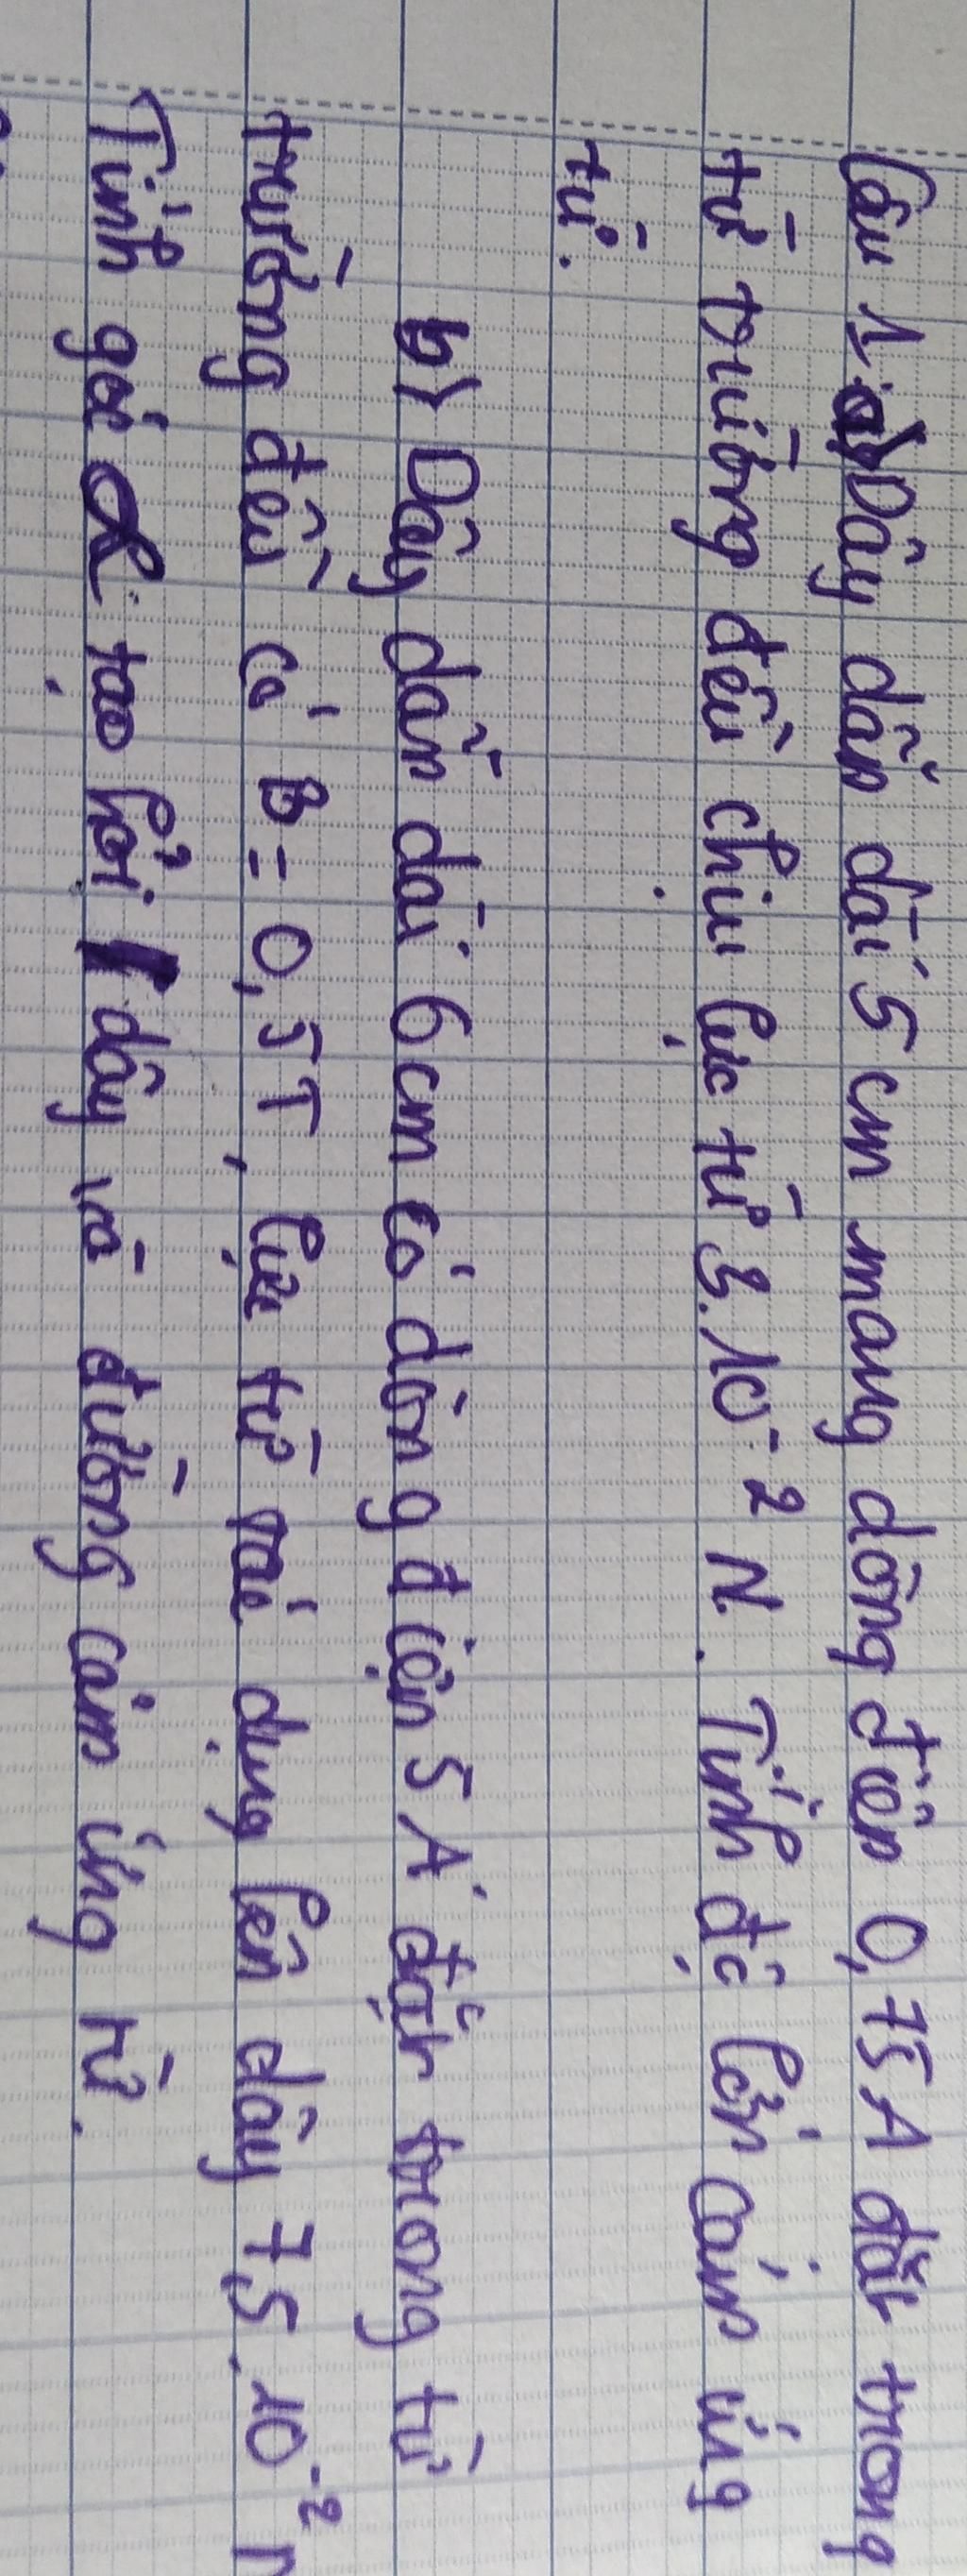 Câu 1. a) Dây dẫn dài 5 cm mang dòng điện 0,75A đặt trong
từ trường đều chịu lực từ 3.10⁻² N. Tính độ lớn cảm ứng
từ.
b) Dây dẫn dài 6cm có dòng điện 5A đặt trong từ
trường đều có B = 0,5T, lực từ tác dụng lên dây 7,5.10⁻² N
Tính góc α tạo bởi dây và đường cảm ứng từ.